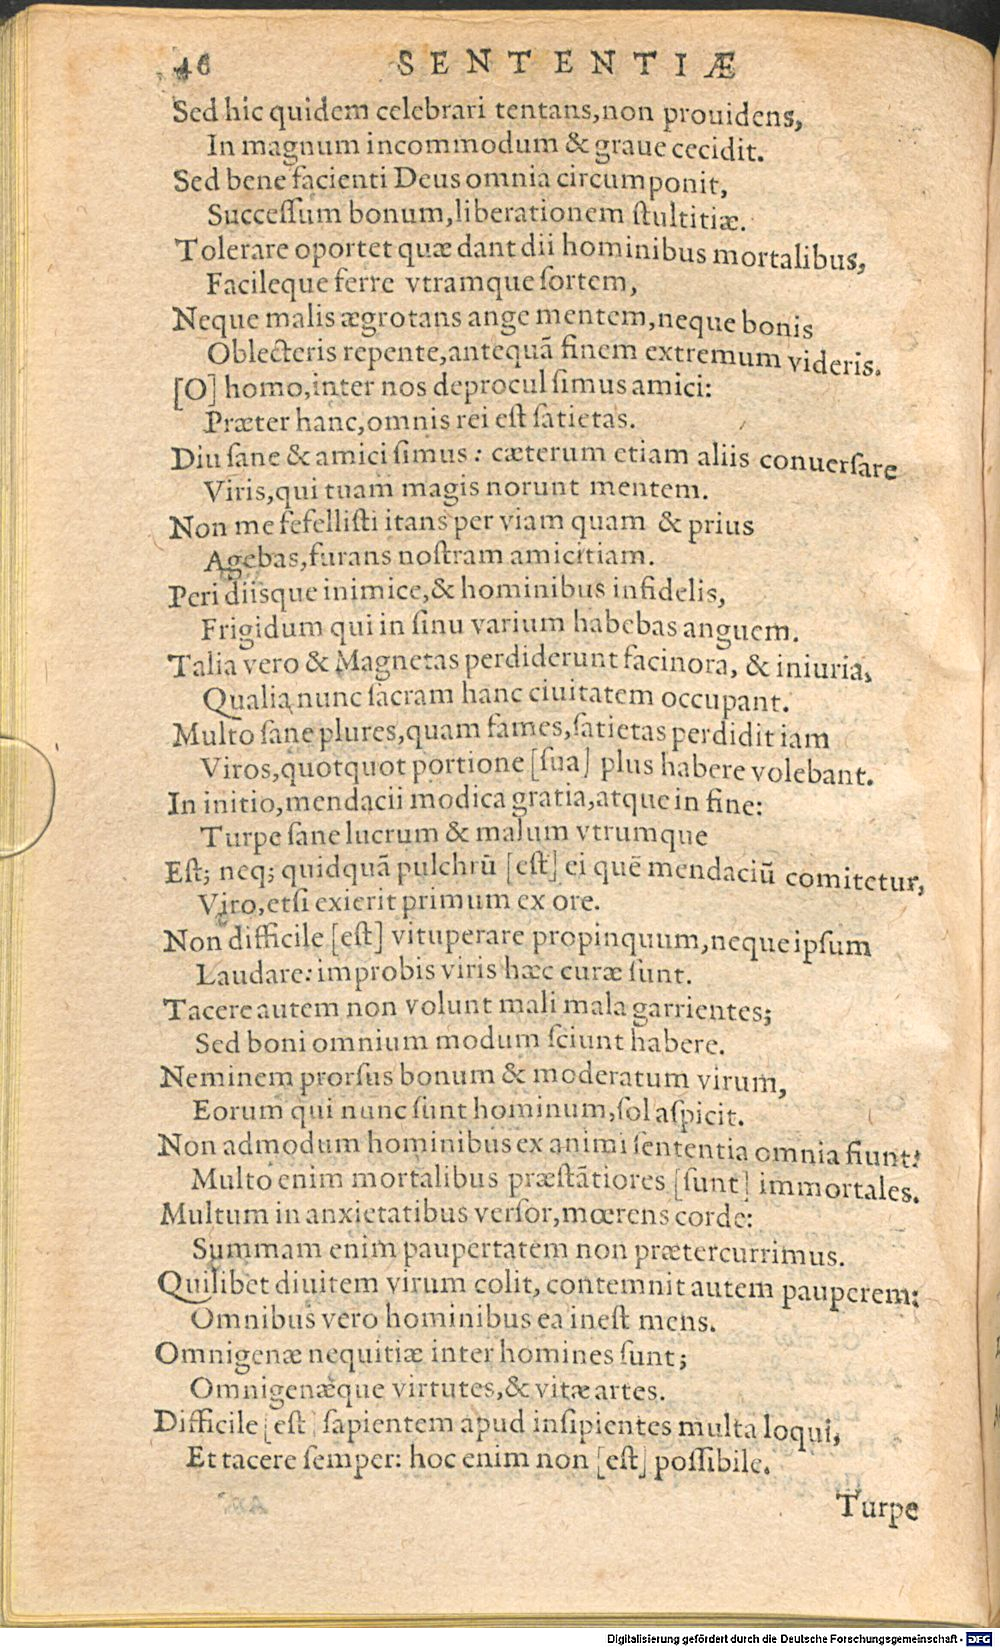 46 SENTENTIÆ
Sed hic quidem celebrari tentans, non prouidens,
In magnum incommodum & graue cecidit.
Sed bene facienti Deus omnia circumponit,
Successum bonum, liberationem stultitiæ.
Tolerare oportet quæ dant dii hominibus mortalibus,
Facileque ferre vtramque sortem,
Neque malis ægrotans ange mentem, neque bonis
Oblecteris repente, antequã finem extremum videris.
[O] homo, inter nos deprocul simus amici:
Præter hanc, omnis rei est satietas.
Diu sane & amici simus: cæterum etiam aliis conuersare
Viris, qui tuam magis norunt mentem.
Non me fefellisti itans per viam quam & prius
Agebas, furans nostram amicitiam.
Peri diisque inimice, & hominibus infidelis,
Frigidum qui in sinu varium habebas anguem.
Talia vero & Magnetas perdiderunt facinora, & iniuria,
Qualia nunc sacram hanc ciuitatem occupant.
Multo sane plures, quam fames, satietas perdidit iam
Viros, quotquot portione [sua] plus habere volebant.
In initio, mendacii modica gratia, atque in fine:
Turpe sane lucrum & malum vtrumque
Est; neq; quidquã pulchrũ [est] ei quẽ mendaciũ comitetur,
Viro, etsi exierit primum ex ore.
Non difficile [est] vituperare propinquum, neque ipsum
Laudare: improbis viris hæc curæ sunt.
Tacere autem non volunt mali mala garrientes;
Sed boni omnium modum sciunt habere.
Neminem prorsus bonum & moderatum virum,
Eorum qui nunc sunt hominum, sol aspicit.
Non admodum hominibus ex animi sententia omnia fiunt:
Multo enim mortalibus præstãtiores [sunt] immortales.
Multum in anxietatibus versor, mœrens corde:
Summam enim paupertatem non prætercurrimus.
Quilibet diuitem virum colit, contemnit autem pauperem;
Omnibus vero hominibus ea inest mens.
Omnigenæ nequitiæ inter homines sunt;
Omnigenæque virtutes, & vitæ artes.
Difficile [est] sapientem apud insipientes multa loqui,
Et tacere semper: hoc enim non [est] possibile.
Turpe
Digitalisierung gefördert durch die Deutsche Forschungsgemeinschaft - DFG